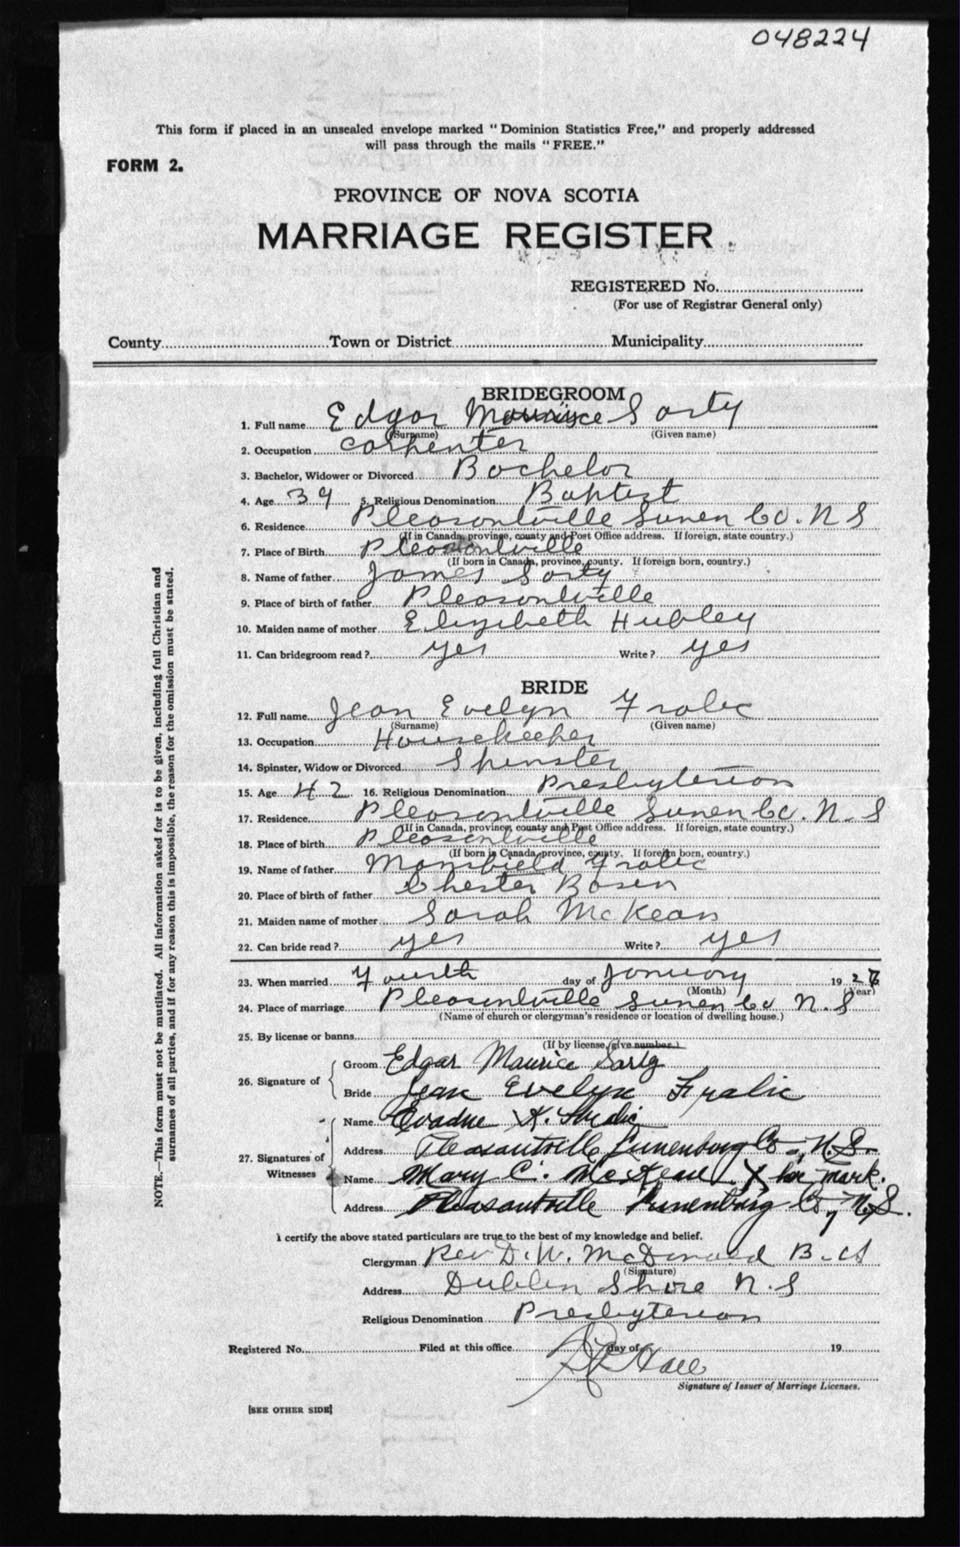 048224
This form if placed in an unsealed envelope marked "Dominion Statistics Free," and properly addressed
will pass through the mails "FREE."
FORM 2.
PROVINCE OF NOVA SCOTIA
MARRIAGE REGISTER
REGISTERED No.
(For use of Registrar General only)
County Town or District Municipality
BRIDEGROOM
1. Full name Edgar Maurice Sarty
(Surname) (Given name)
2. Occupation carpenter
3. Bachelor, Widower or Divorced Bachelor
4. Age 39 5. Religious Denomination Baptist
6. Residence Pleasantville Lunen Co. N S
(If in Canada, province, county and Post Office address. If foreign, state country.)
7. Place of Birth Pleasantville
(If born in Canada, province, county. If foreign born, country.)
8. Name of father James Sarty
9. Place of birth of father Pleasantville
10. Maiden name of mother Elizibeth Hubley
11. Can bridegroom read? yes Write? yes
BRIDE
12. Full name Jean Evelyn Fralic
(Surname) (Given name)
13. Occupation Housekeeper
14. Spinster, Widow or Divorced Spinster
15. Age 42 16. Religious Denomination Presbyterian
17. Residence Pleasantville Lunen Co. N. S
(If in Canada, province, county and Post Office address. If foreign, state country.)
18. Place of birth Pleasantville
(If born in Canada, province, county. If foreign born, country.)
19. Name of father Mansfield Fralic
20. Place of birth of father Chester Basin
21. Maiden name of mother Sarah McKean
22. Can bride read? yes Write? yes
23. When married Fourth day of January 19 26
(Month) (Year)
24. Place of marriage Pleasantville Lunen Co N. S
(Name of church or clergyman's residence or location of dwelling house.)
25. By license or banns
(If by license, give number.)
26. Signature of
Groom Edgar Maurice Sarty
Bride Jean Evelyn Fralic
27. Signatures of Witnesses
Name Evadne Fralic
Address Pleasantville Lunenburg Co., N.S.
Name Mary C. McKean X her mark.
Address Pleasantville Lunenburg Co, N.S.
I certify the above stated particulars are true to the best of my knowledge and belief.
Clergyman Rev D. W. McDonald
(Signature)
Address Dublin Shore N. S
Religious Denomination Presbyterian
Registered No. Filed at this office day of 19
Signature of Issuer of Marriage Licenses.
[SEE OTHER SIDE]
NOTE.—This form must not be mutilated. All information asked for is to be given, including full Christian and
surnames of all parties, and if for any reason this is impossible, the reason for the omission must be stated.